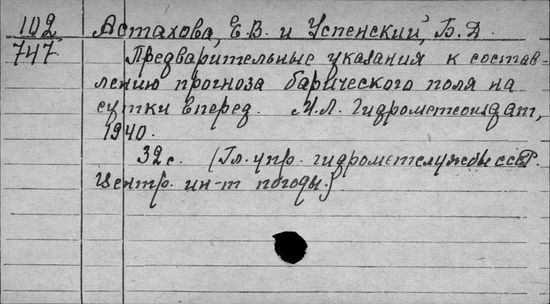 102 Астахова, Е.В. и Успенский, Б.Д.
747 Предварительные указания к состав-
лению прогноза барического поля на
сутки вперед. М.Л. Гидрометеоиздат,
1940.
32 с. (Гл. упр. гидрометслужбы СССР.
Центр. ин-т погоды.)